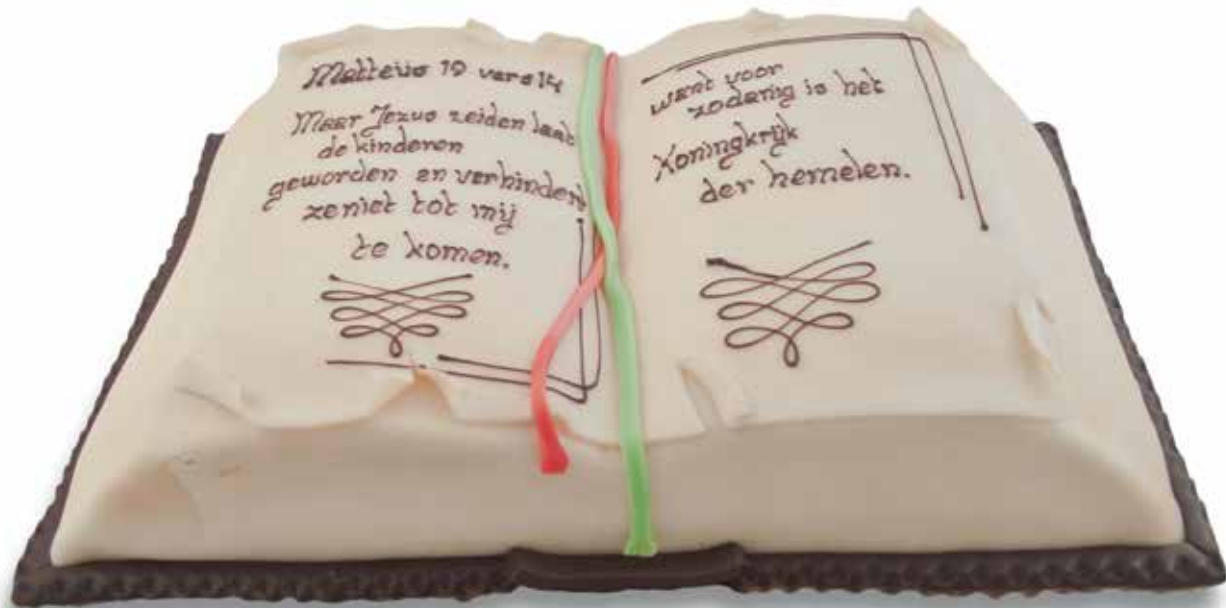 Matteüs 19 vers 14
Maar Jezus zeiden laat
de kinderen
geworden en verhindert
ze niet tot mij
te komen.
want voor
zodanig is het
Koningkrijk
der hemelen.